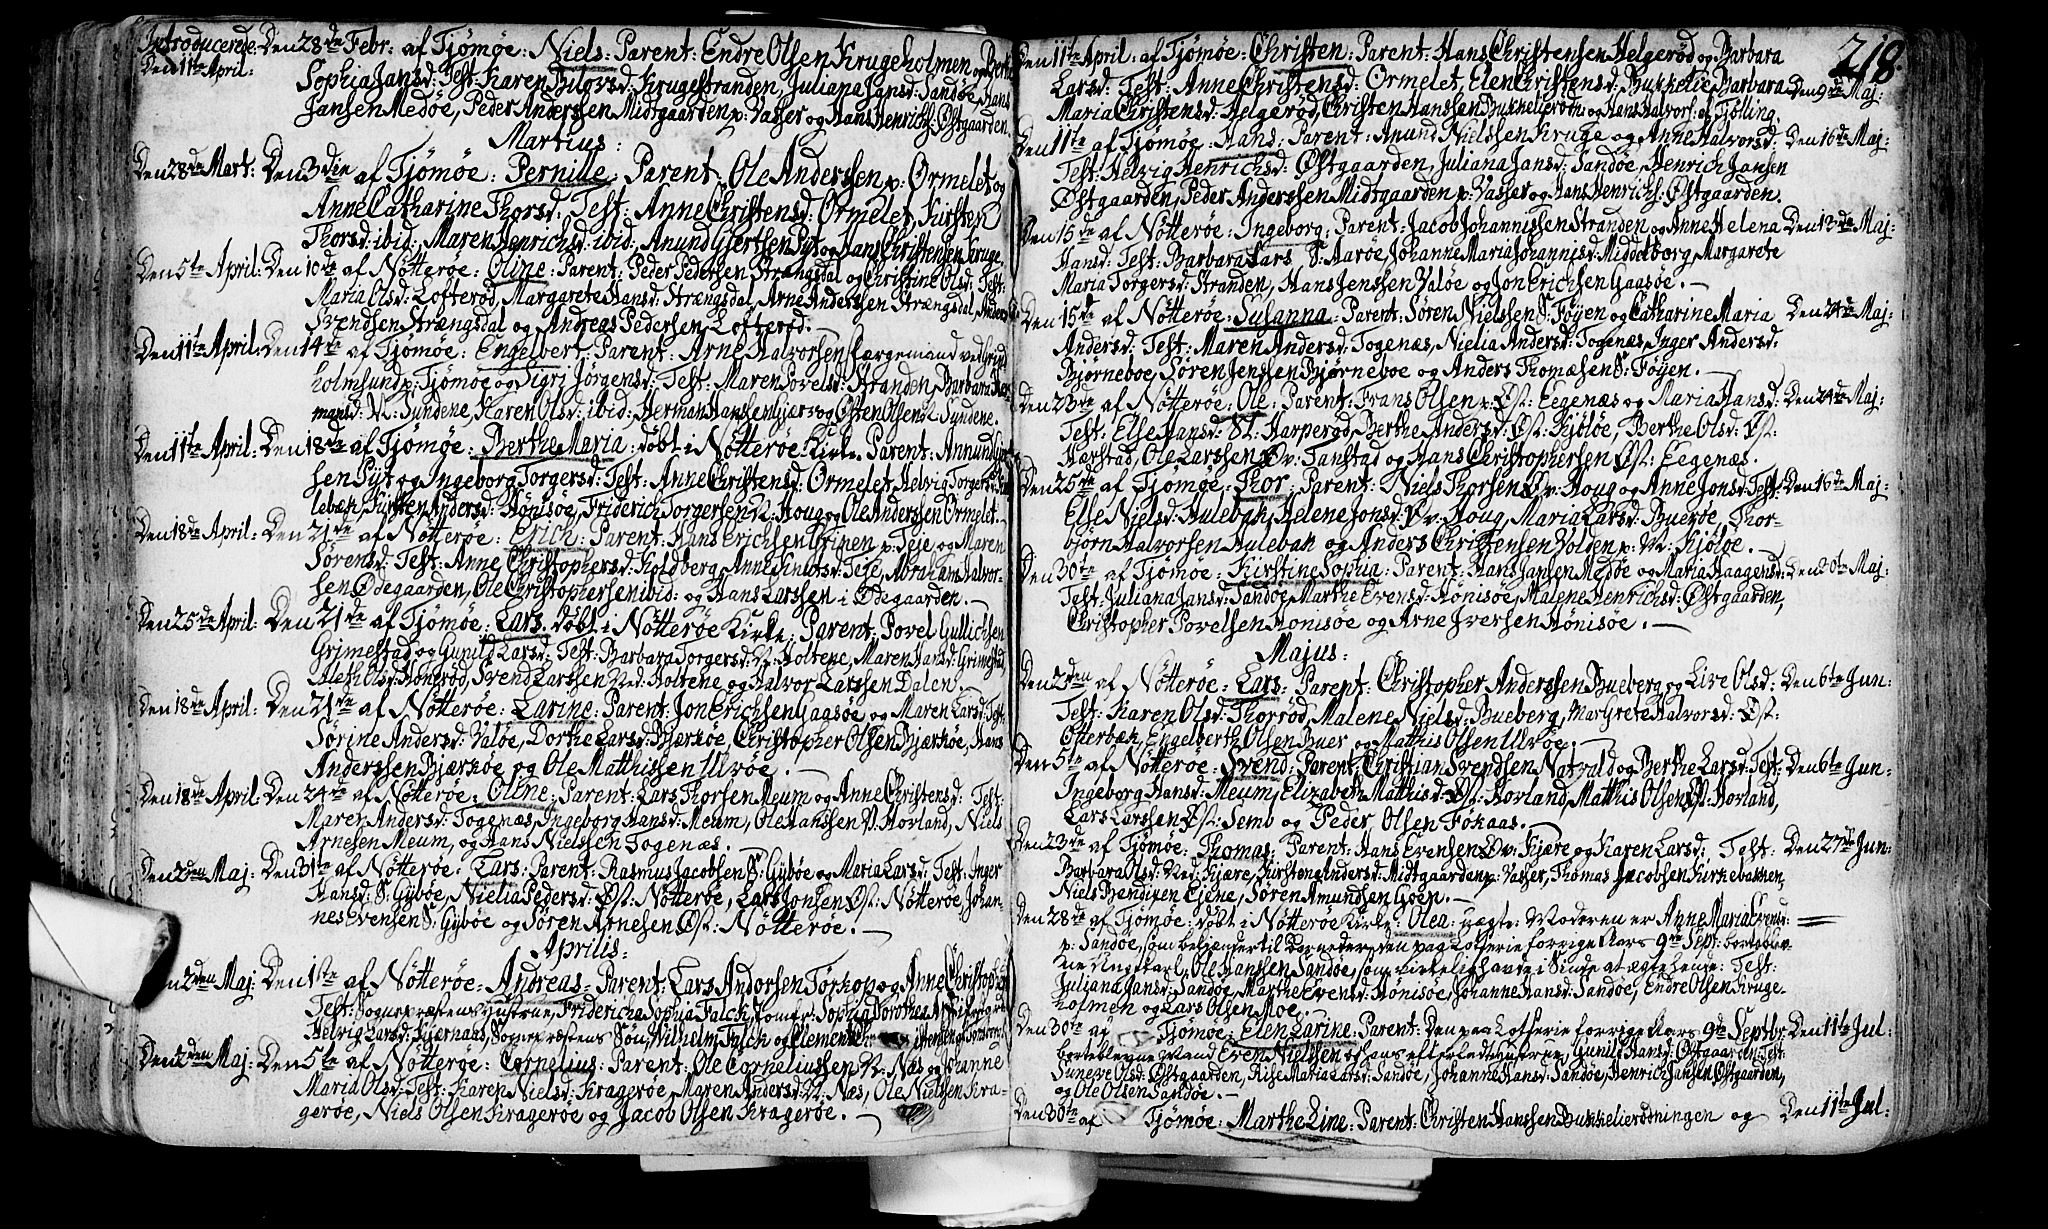 Introducerede: Den 28de Febr: af Tjömöe: Niels: Parent: Endre Olsen Krugeholmen og Berte
Den 11te April:
Sophia Jansd: Test: Karen Krugestranden, Juliana Jansd: Sandöe, Hans
Jansen Medöe, Peder Anderssen Midtgaarden p: Vasser og Hans Henrichs: Østgaarden.
Martius:
Den 28de Mart: Den 3die af Tjömöe: Pernille: Parent: Ole Anderssen p: Ormelet og
Anne Catharine Thorsd: Test: Anne Christensd: Ormelet, Kirsten
Thorsd: ibid: Maren Henrichsd: ibid: Anund Giertsen Syt og Hans Christensen Kruge.
Den 5te April: Den 10de af Nötteröe: Oline: Parent: Peder Pedersen Strængsdal og Christine Olsd: Test:
Maria Olsd: Lofteröd, Margarete Hansd: Strængsdal, Arne Anderssen Strængsdal, Anders
Svendsen Strængsdal og Andreas Pedersen Lofteröd.
Den 11te April: Den 14de af Tjömöe: Engelbert: Parent: Arne Halvorsen færgemand ved
holmsund p: Tjömöe og Sigri Jörgensd: Test: Maren Povelsd: Stranden, Barbara Her-
mansd: N: Syndene, Karen Olsd: ibid: Herman Hanssen og Osten Olsen N: Syndene.
Den 11te April: Den 18de af Tjömöe: Berthe Maria: döbt i Nötteröe Kirke: Parent: Annund Giert-
sen Syt og Ingeborg Torgersd: Test: Anne Christensd: Ormelet, Helvig Torgersd:
lebæk, Kirsten Andersd: Hönisöe, Friderich Torgersen N: Houg og Ole Anderssen Ormelet.
Den 18de April: Den 21de af Nötteröe: Erich: Parent: Hans Erichsen Grinen p: Teje og Maren
Sörensd: Test: Anne Christophersd: Koldberg, Anne Knutsd: Teje, Abraham Halvor-
sen Ødegaarden, Ole Christophersen ibid: og Hans Larssen i Ødegaarden.
Den 25de April: Den 21de af Tjömöe: Lars: döbt i Nötteröe Kirke: Parent: Povel Gullichsen
Grimestad og Gunild Larsd: Test: Barbara Torgersd: N: Holtene, Maren Hansd: Grimestad,
Aleth Olsd: Honeröd, Svend Larssen Ned: Holtene og Halvor Larssen Dalen.
Den 18de April: Den 21de af Nötteröe: Larine: Parent: Jon Erichsen Gaasöe og Maren Larsd: Test:
Sörine Andersd: Valöe, Dorthe Larsd: Bjerköe, Christopher Olsen Bjærköe, Hans
Anderssen Bjærköe og Ole Matthissen Ulvöe.
Den 18de April: Den 24de af Nötteröe: Olene: Parent: Lars Thorsen Meum og Anne Christensd: Test:
Maren Andersd: Togenæs, Ingeborg Hansd: Meum, Ole Hanssen V: Hovland, Niels
Arnesen Meum, og Hans Nielssen Togenæs.
Den 2den Maj: Den 31te af Nötteröe: Lars: Parent: Rasmus Jacobsen S: Gyböe og Maria Larsd: Test: Inger
Hansd: S: Gyböe, Nielia Pedersd: Øst: Nötteröe, Lars Jonsen Øst: Nötteröe, Johan-
nes Evensen S: Gyböe og Sören Arnesen Øst: Nötteröe.
Aprilis:
Den 2den Maj: Den 1ste af Nötteröe: Andreas: Parent: Lars Andorsen Törkop og Anne Christophersd:
Test: Sognepræstens Hustrue, Friderica Sophia Falch, Jomfr: Sophia Dorothea
Helvig Larsd: Kjernaas, Sognepræstens Sön Wilhelm Falch og
Den 2den Maj: Den 5te af Nötteröe: Cornelius: Parent: Ole Corneliussen N: Næs og Johanne
Maria Olsd: Test: Karen Nielsd: Krageröe, Maren Andersd: N: Næs, Ole Nielsen Kra-
geröe, Niels Olsen Krageröe og Jacob Olsen Krageröe.
218
Den 11te April: af Tjömöe: Christen: Parent: Hans Christensen Helgeröd og Barbara
Larsd: Test: Anne Christensd: Ormelet, Elen Christensd: Bukkelie, Barbara Den 9de Maj:
Maria Christensd: Helgeröd, Christen Hanssen og Hans Halvors: af Tjölling.
Den 11te af Tjömöe: Hans: Parent: Anund Nielssen Kruge og Anne Halvorsd: Den 16de Maj:
Test: Helvig Henrichsd: Østgaarden, Juliana Jansd: Sandöe, Henrich Jansen
Østgaarden, Peder Anderssen Midtgaarden p: Vasser og Hans Henrichs: Østgaarden.
Den 15de af Nötteröe: Ingeborg: Parent: Jacob Johannissen Stranden og Anne Helena Den 13de Maj:
Hansd: Test: Barbara Lars S: Aaröe, Johanne Maria Johannisd: Middelborg, Margarete
Maria Torgersd: Stranden, Hans Jenssen Valöe og Jon Erichsen Gaasöe.
Den 15de af Nötteröe: Susanna: Parent: Sören Nielssen S: Föyen og Catharine Maria Den 24de Maj:
Andersd: Test: Maren Andersd: Togenæs, Nielia Andersd: Togenæs, Inger Andersd:
Bjørneboe, Sören Jenssen Bjørneboe og Anders Thomæsen S: Föyen.
Den 23de af Nötteröe: Ole: Parent: Frans Olsen p: Øst: Eegenæs og Maria Hansd: Den 24de Maj:
Test: Else Hansd: St: Harperöd, Berthe Andersd: Øst: Kjölöe, Berthe Olsd: Øst:
Harstad, Ole Larssen Øv: Tanstad og Hans Christophersen Øst: Eegenæs.
Den 25de af Tjömöe: Thor: Parent: Niels Thorsen Øv: Houg og Anne Jonsd: Test: Den 16de Maj:
Else Nielsd: Hulebak, Helene Jonsd: Øv: Houg, Maria Larsd: Bueröe, Thor-
björn Halvorsen Hulebak og Anders Christensen Holden p: N: Kjölöe.
Den 30te af Tjömöe: Kirstine Sophia: Parent: Hans Jansen Medöe og Maria Haagensd: Den 30te Maj:
Test: Juliana Jansd: Sandöe, Marthe Evensd: Hönisöe, Malene Henrichsd: Østgaarden,
Christopher Povelsen Hönisöe og Arne Iversen Hönisöe.
Majus:
Den 2den af Nötteröe: Lars: Parent: Christopher Anderssen Bueberg og Live Olsd: Den 6te Jun:
Test: Karen Olsd: Thorröd, Malene Nielsd: Bueberg, Margrete Halvorsd: Øst:
Ofterbæk, Engelberth Olsen Buer og Mathis Olsen Ulvöe.
Den 5te af Nötteröe: Svend: Parent: Christian Svendsen Natvald og Berthe Larsd: Test: Den 6te Jun:
Ingeborg Hansd: Meum, Elizabeth Mathisd: Øst: Hovland, Matthis Olsen Øst: Hovland,
Lars Larssen Øst: Semb og Peder Olsen Fökaas.
Den 23de af Tjömöe: Thomas: Parent: Hans Evensen Øv: Kjære og Karen Larsd: Test: Den 27de Jun:
Barbara Olsd: Ned: Kjære, Kirstene Andersd: Midtgaarden p: Vasser, Thomas Jacobsen Kirkebakken,
Niels Bendixen Ejene, Sören Amundsen Goen.
Den 28de af Tjömöe: döbt i Nötteröe Kirke: Olea: uægte: Moderen er Anne Maria Evensd:
p: Sandöe, som bekjender til Barnefader, den paa Lotserie forrige Aars 9de Sept: borteblev-
ne Ungkarl, Ole Hanssen Sandöe, som virkelig havde i Sinde at ægte hende: Test:
Juliana Jansd: Sandöe, Marthe Evensd: Hönisöe, Johanne Hansd: Sandöe, Endre Olsen Kruge-
holmen og Lars Olsen Moe.
Den 30te af Tjömöe: Elen Larine: Parent: Den paa Lotserie forrige Aars 9de Septbr: Den 11te Jul:
borteblevne Mand Even Nielssen og hans efterladte Hustrue, Gunild Hansd: Østgaarden: Test:
Suneve Olsd: Østgaarden, Rise Maria Larsd: Sandöe, Johanne Hansd: Sandöe, Henrich Jansen Østgaarden,
og Ole Olsen Sandöe.
Den 30te af Tjömöe: Marthe Line: Parent: Christen Hanssen Bukkelierödningen og Den 11te Jul: